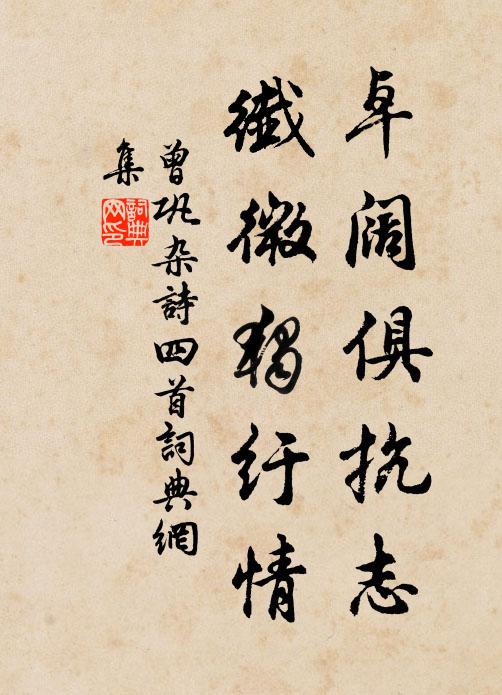 卓闊俱抗志
纖微獨紆情
曾巩杂詩四首詞典網
集
詞典网印